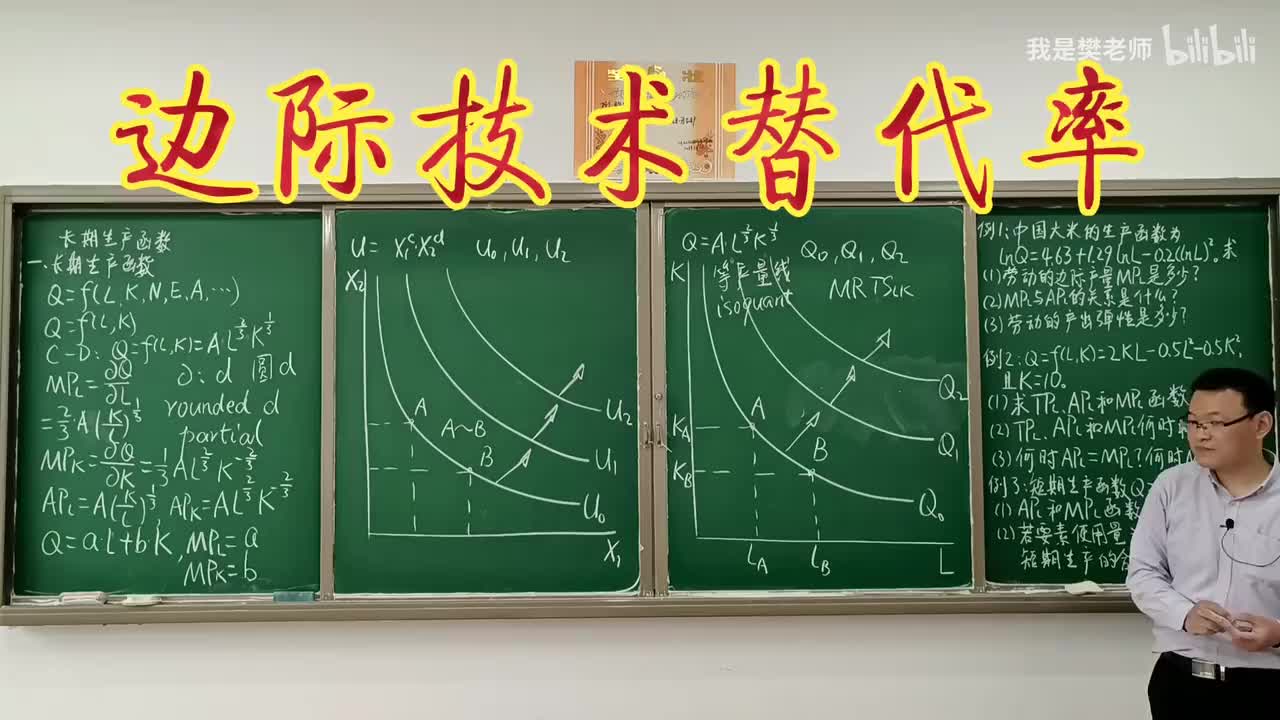 我是樊老师 bilibili
边际技术替代率
长期生产函数
一.长期生产函数
Q=f(L,K,N,E,A,…)
Q=f(L,K)
C-D: Q=f(L,K)=A·L^{2/3}K^{1/3}
MP_L=∂Q/∂L
∂:d 圆d
=2/3·A(K/L)^{1/3}
rounded d
partial
MP_K=∂Q/∂K=1/3 AL^{2/3}K^{-2/3}
AP_L=A(K/L)^{1/3}, AP_K=AL^{2/3}K^{-2/3}
Q=a·L+b·K, MP_L=a
MP_K=b
U=X₁^c·X₂^d
U₀,U₁,U₂
X₂
A
A~B
B
U₂
U₁
U₀
X₁
Q=A·L^{2/3}K^{1/3}
Q₀,Q₁,Q₂
K
等产量线
isoquant
MRTS_{LK}
K_A
K_B
A
B
Q₂
Q₁
Q₀
L_A
L_B
L
例1:中国大米的生产函数为
lnQ=4.63+1.29lnL-0.2(lnL)²。求
(1)劳动的边际产量MP_L是多少?
(2)MP_L与AP_L的关系是什么?
(3)劳动的产出弹性是多少?
例2:Q=f(L,K)=2KL-0.5L²-0.5K²,
且K=10。
(1)求TP_L、AP_L和MP_L函数
(2)TP_L、AP_L和MP_L何时
(3)何时AP_L=MP_L?何时
例3:短期生产函数Q
(1)AP_L和MP_L函数
(2)若要素使用量
短期生产的合